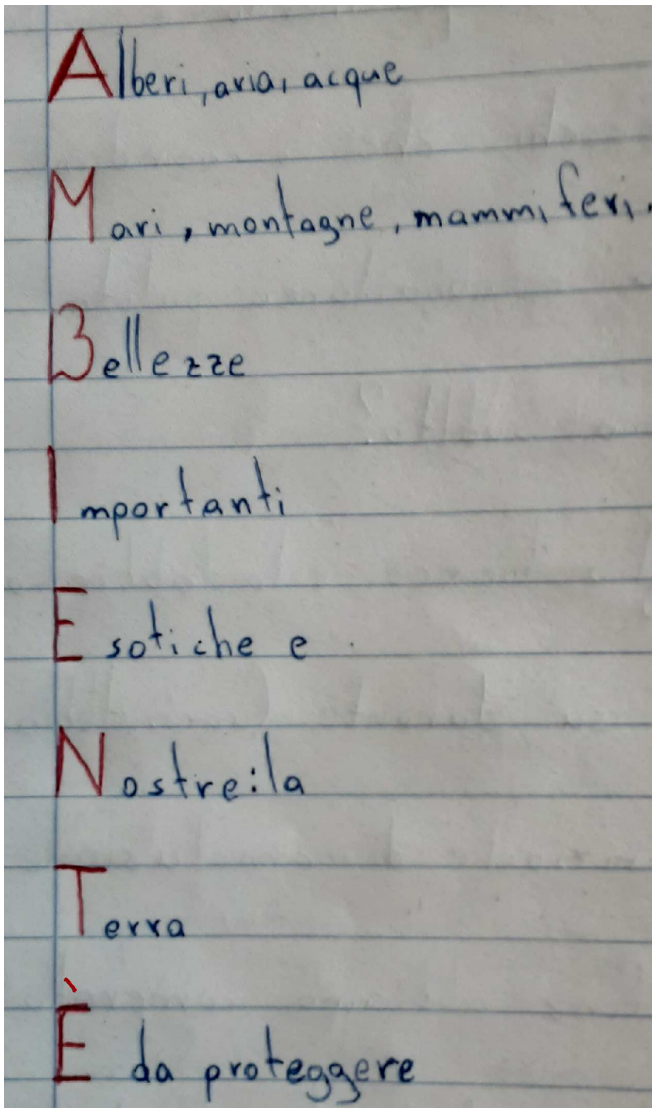 Alberi, aria, acque
Mari, montagne, mammiferi.
Bellezze
Importanti
Esotiche e
Nostre: la
Terra
È da proteggere